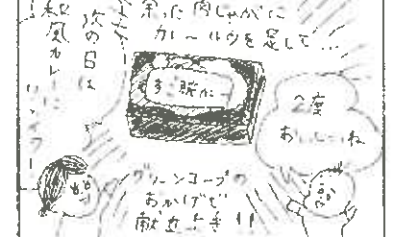 余った肉じゃがに
カレールウを足して…
次の日は
和風カレーに
2度
おいしーね
グリーンコープの
おかげで
献立上手!!